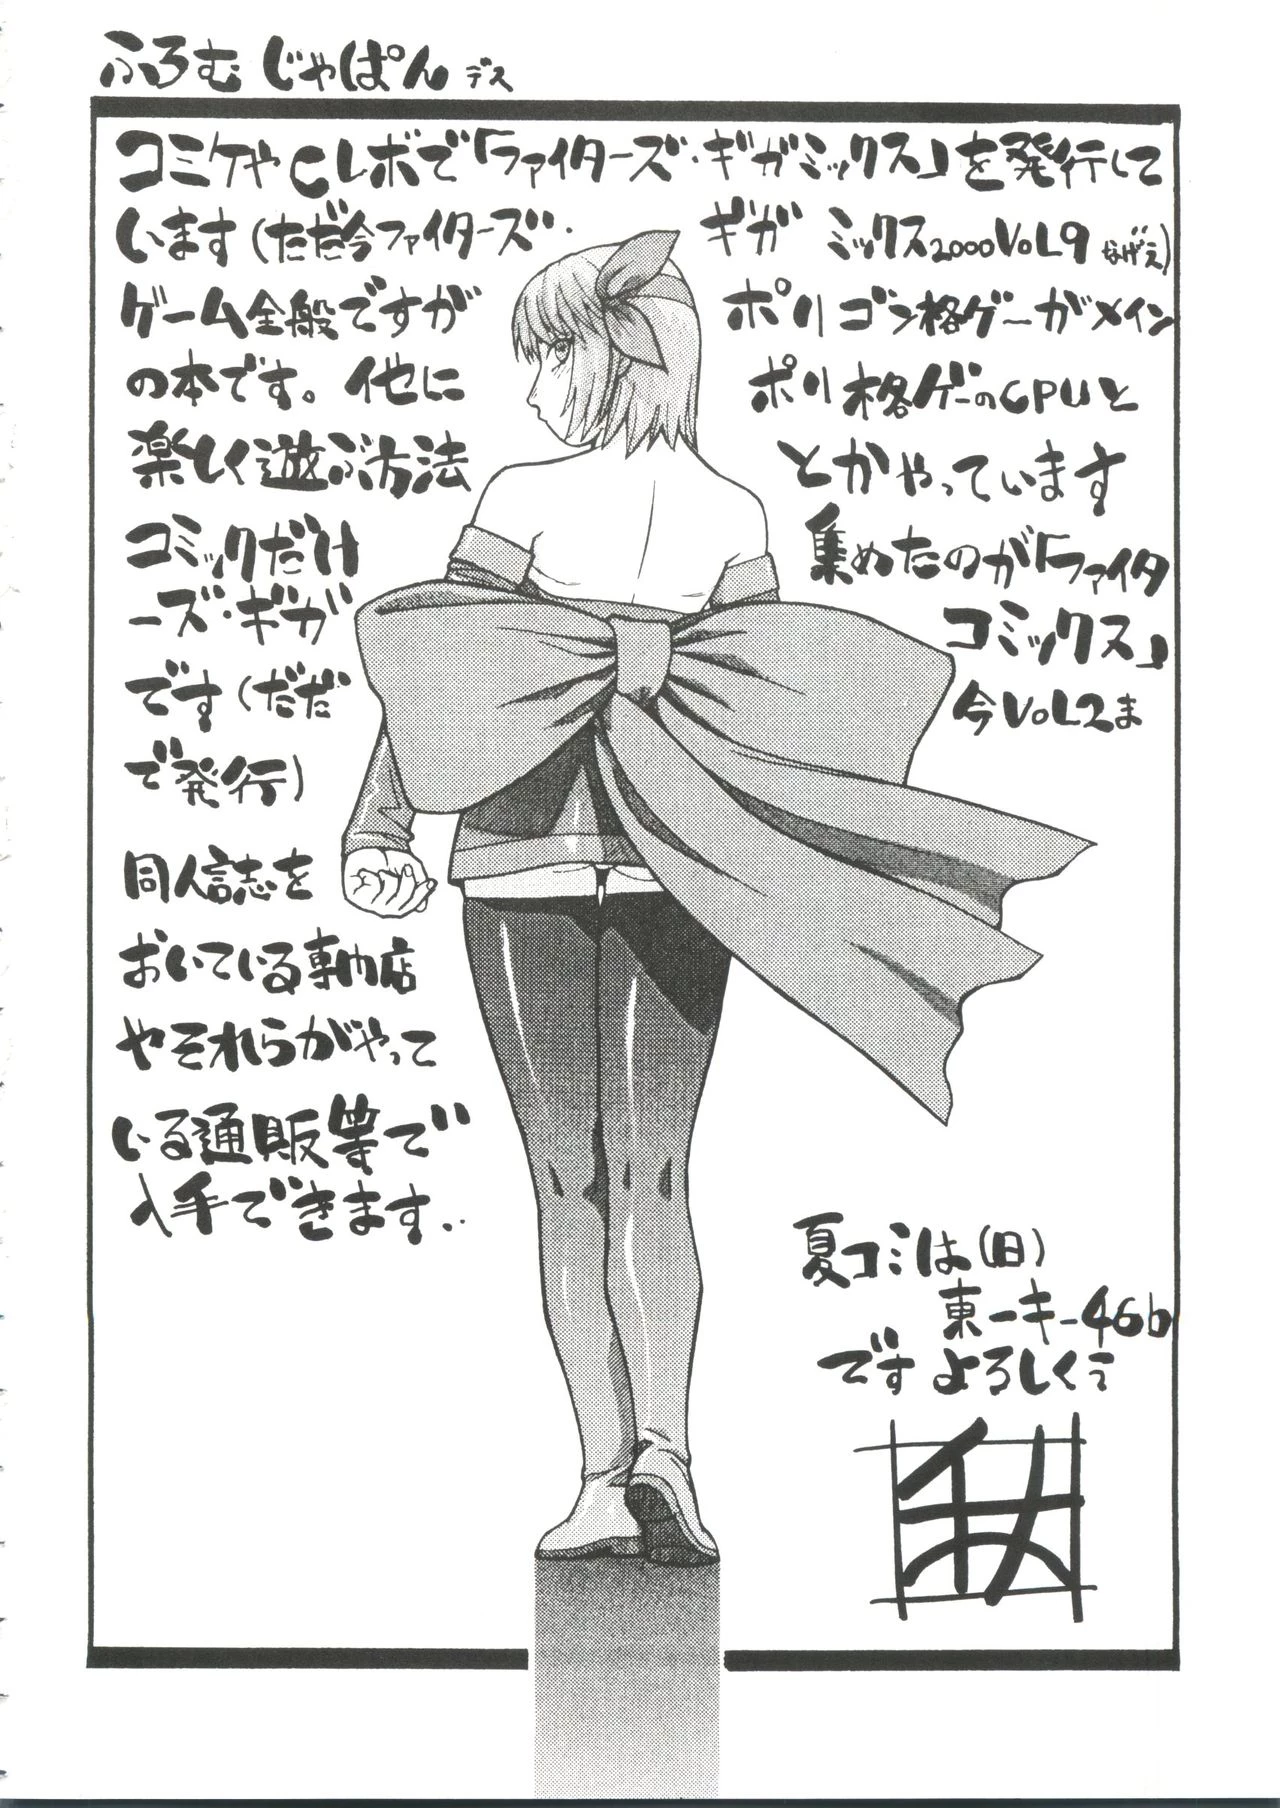 ふろむじゃぱん デス
コミケやCレボで「ファイターズ・ギガミックス」を発行して
います(ただ今ファイターズ・ギガ ミックス2000VOL9 なげえ)
ゲーム全般ですが ポリゴン格ゲーがメイン
の本です。他に ポリ格ゲーのCPUと
楽しく遊ぶ方法 とかやっています
コミックだけ 集めたのが「ファイタ
ーズ・ギガ コミックス」
です(ただ 今VOL2ま
で発行)
同人誌を
おいている専門店
やそれらがやって
いる通販等で
入手できます.
夏コミは(日)
東ーキー46b
ですよろしくぅ
秋